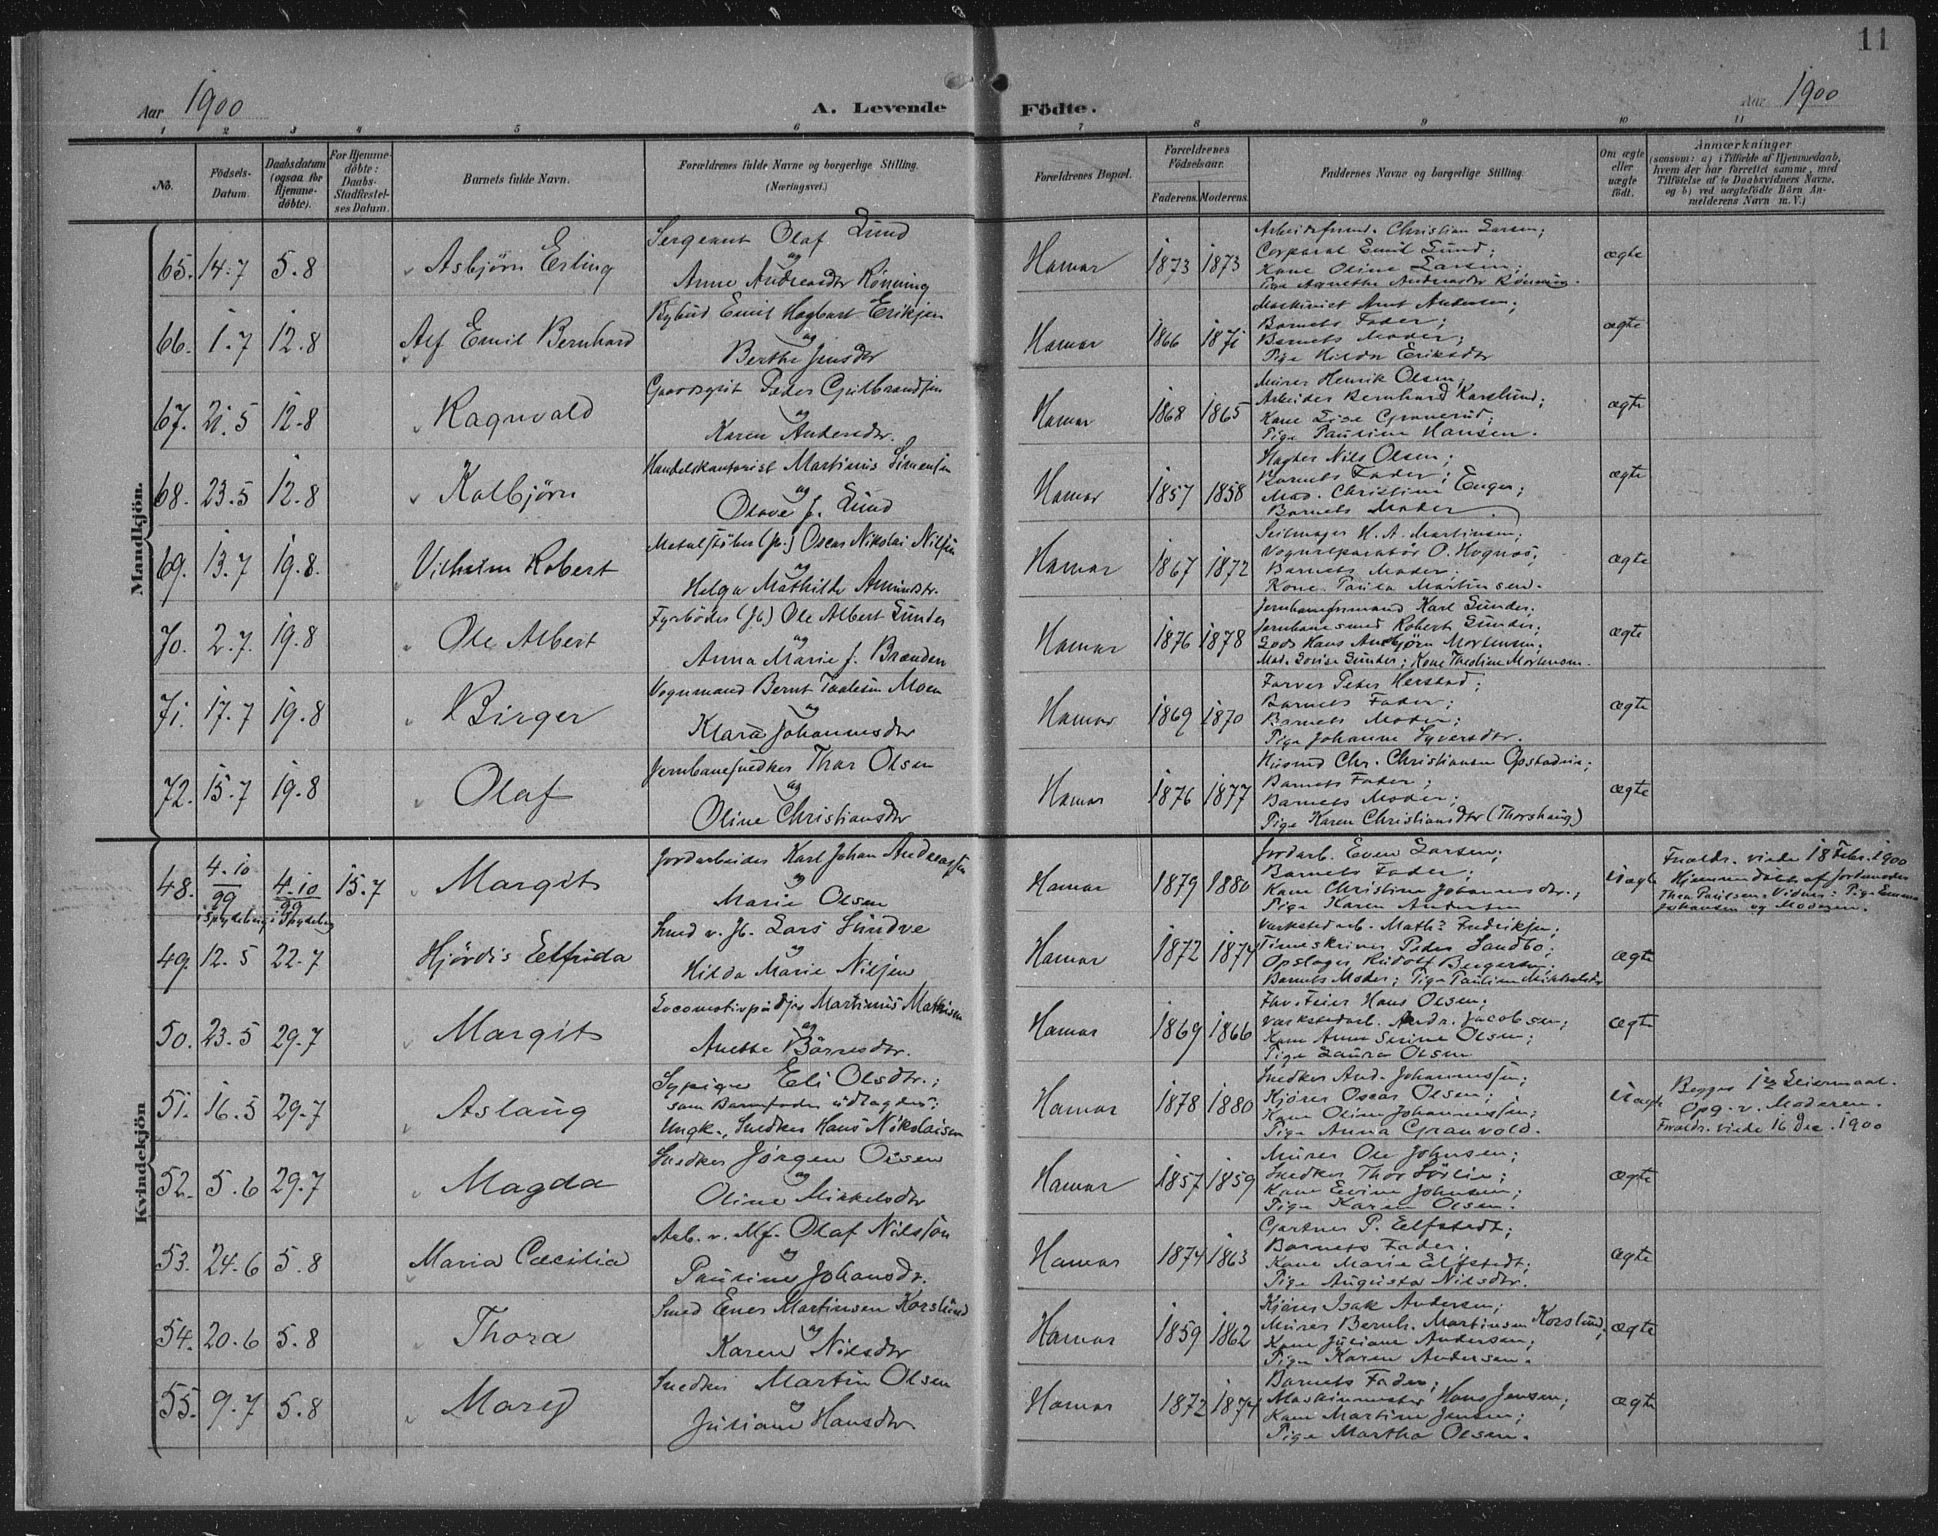 11
Aar 1900 A. Levende Födte. Aar 1900
1 2 3 4 5 6 7 8 9 10 11
No. Födsels-Datum. Daabsdatum (ogsaa for Hjemme-döbte). For Hjemme-döbte: Daabs-Stadfæstel-ses Datum. Barnets fulde Navn. Forældrenes fulde Navne og borgerlige Stilling. (Næringsvei.) Forældrenes Bopæl. Forældrenes Födselsaar. Faderens. Moderens. Faddernes Navne og borgerlige Stilling. Om ægte eller uægte födt. Anmærkninger (saasom: a) i Tilfælde af Hjemmedaab, hvem der har forrettet samme, med Tilföielse af to Daabsvidners Navne, og b) ved uægtefödte Börn An-melderens Navn m. V.)
Mandkjön.
65. 14.7 5.8 Asbjørn Erling
Sergeant Olaf Lund
og
Anne Andreasdtr Rönning
Hamar 1873 1873
Arbeidsfrmd. Christian Larsen;
Corporal Emil Lund;
Kone Oline Larsen;
Pige Agnethe Andreasdtr Rönning.
ægte
66. 1.7 12.8 Alf Emil Bernhard
Bybud Emil Hagbart Eriksen
og
Berthe Jensdtr
Hamar 1866 1871
Maskinist Arnt Andersen;
Barnets Fader;
Barnets Moder;
Pige Hilda Eriksdtr
ægte
67. 21.5 12.8 Ragnvald
Peder Gulbrandsen
og
Karen Andersdtr.
Hamar 1868 1865
Murer Henrik Olsen;
Arbeider Bernhard Karslund;
Kone Lise Granerud;
Pige Pauline Hansen.
ægte
68. 23.5 12.8 Kolbjørn
Handelskontorist Martinus Simensen
og
Olave f. Lund
Hamar 1857 1858
Nils Olsen;
Barnets Fader;
Mad. Christine Enger;
Barnets Moder
ægte
69. 13.7 19.8. Vilhelm Robert
Metalstøber (Jb.) Oscar Nikolai Nilsen
og
Helga Mathilde Amundsdtr.
Hamar 1867 1872
Seilmager H. A. Martinsen;
Vognreparatör O. Hognæs;
Barnets Moder;
Kone Paula Martinsen.
ægte
70. 2.7. 19.8 Ole Albert
Fyrbøder (Jb.) Ole Albert Sunder
og
Anna Marie f. Brænden
Hamar 1876 1878
Karl Sunder;
Jernbanesmed Robert Sunder;
Hans Asbjörn Mortensen;
Mad. Lovise Sunder; Kone Theoline Mortensen.
ægte
71. 17.7 19.8 Birger
Vognmand Bernt Taalesen Moen
og
Klara Johannesdtr
Hamar 1869 1870
Farver Peter Herstad;
Barnets Fader;
Barnets Moder;
Pige Johanne Syversdtr.
ægte
72. 15.7 19.8 Olaf
Jernbanesnedker Thor Olsen
og
Oline Christiansdtr
Hamar 1876 1877
Husmd Chr. Christiansen Opstadeie;
Barnets Fader;
Barnets Moder;
Pige Karen Christiansdtr (Thorshaug)
ægte
Kvindekjön
48. 4.10 99 i Spydeberg 4.10 99 i Spydeberg 15.7 Margit
Jordarbeider Karl Johan Andreassen
og
Marie Olsen
Hamar 1879 1880
Jordarb. Even Larsen;
Barnets Fader;
Kone Christine Johannesdtr.;
Pige Karen Andersen
uægte
Foraldr. viede 18 Febr. 1900
Hjemmedøbt af Jordemoder
Thea Paulsen. Vidner: Pige Emma
Johansen og Moderen.
49. 12.5 22.7 Hjördis Elfrida
Smed v. Jb. Lars Sundve
og
Hilda Marie Nilsen
Hamar 1872 1874
Værkstedarb. Maths Fredriksen;
Timeskriver Peder Sandbo;
Opslager Rudolf Bergersen;
Barnets Moder; Pige Pauline Mikkelsdtr
ægte
50. 23.5 29.7 Margit
Locomotivpudser Martinus Mathisen
og
Anette Börresdtr.
Hamar 1869 1866
Feier Hans Olsen;
Værkstedarb. Andr. Jacobsen;
Kone Anne Serine Olsen;
Pige Laura Olsen
ægte
51. 16.5 29.7 Aslaug
Sypige Eli Olsdtr.;
som Barnefader udlagdes:
Ungk., Snedker Hans Nikolaisen
Hamar 1878 1880
Snedker And. Johannessen;
Kjörer Oscar Olsen;
Kone Oline Johannessen;
Pige Anna Granvold.
uægte
Begges 1ste Leiermaal.
Opg. v. Moderen.
Foraldr. viede 16 Dec. 1900
52. 5.6 29.7 Magda
Snedker Jörgen Olsen
og
Oline Mikkelsdtr
Hamar 1857 1859
Murer Ole Johnsen;
Snedker Thor Sörlie;
Kone Evine Johnsen;
Pige Karen Olsen.
ægte
53. 24.6 5.8 Maria Cæcilia
Arb. v. Mf. Olaf Nilsson
og
Pauline Johansdtr.
Hamar 1874 1863
Gartner P. Elfstedt;
Barnets Fader;
Kone Marie Elfstedt;
Pige Augusta Nilsdtr.
ægte
54. 20.6 5.8 Thora
Smed Ener Martinsen Korslund
og
Karen Nilsdtr
Hamar 1859 1862
Kjörer Isak Andersen;
Murer Bernh. Martinsen Korslund;
Kone Juliane Andersen;
Pige Karen Andersen.
ægte
55. 9.7 5.8 Mary
Snedker Martin Olsen
og
Juliane Hansdtr
Hamar 1872 1874
Barnets Fader;
Maskinmester Hans Jensen;
Kone Martine Jensen;
Pige Martha Olsen.
ægte